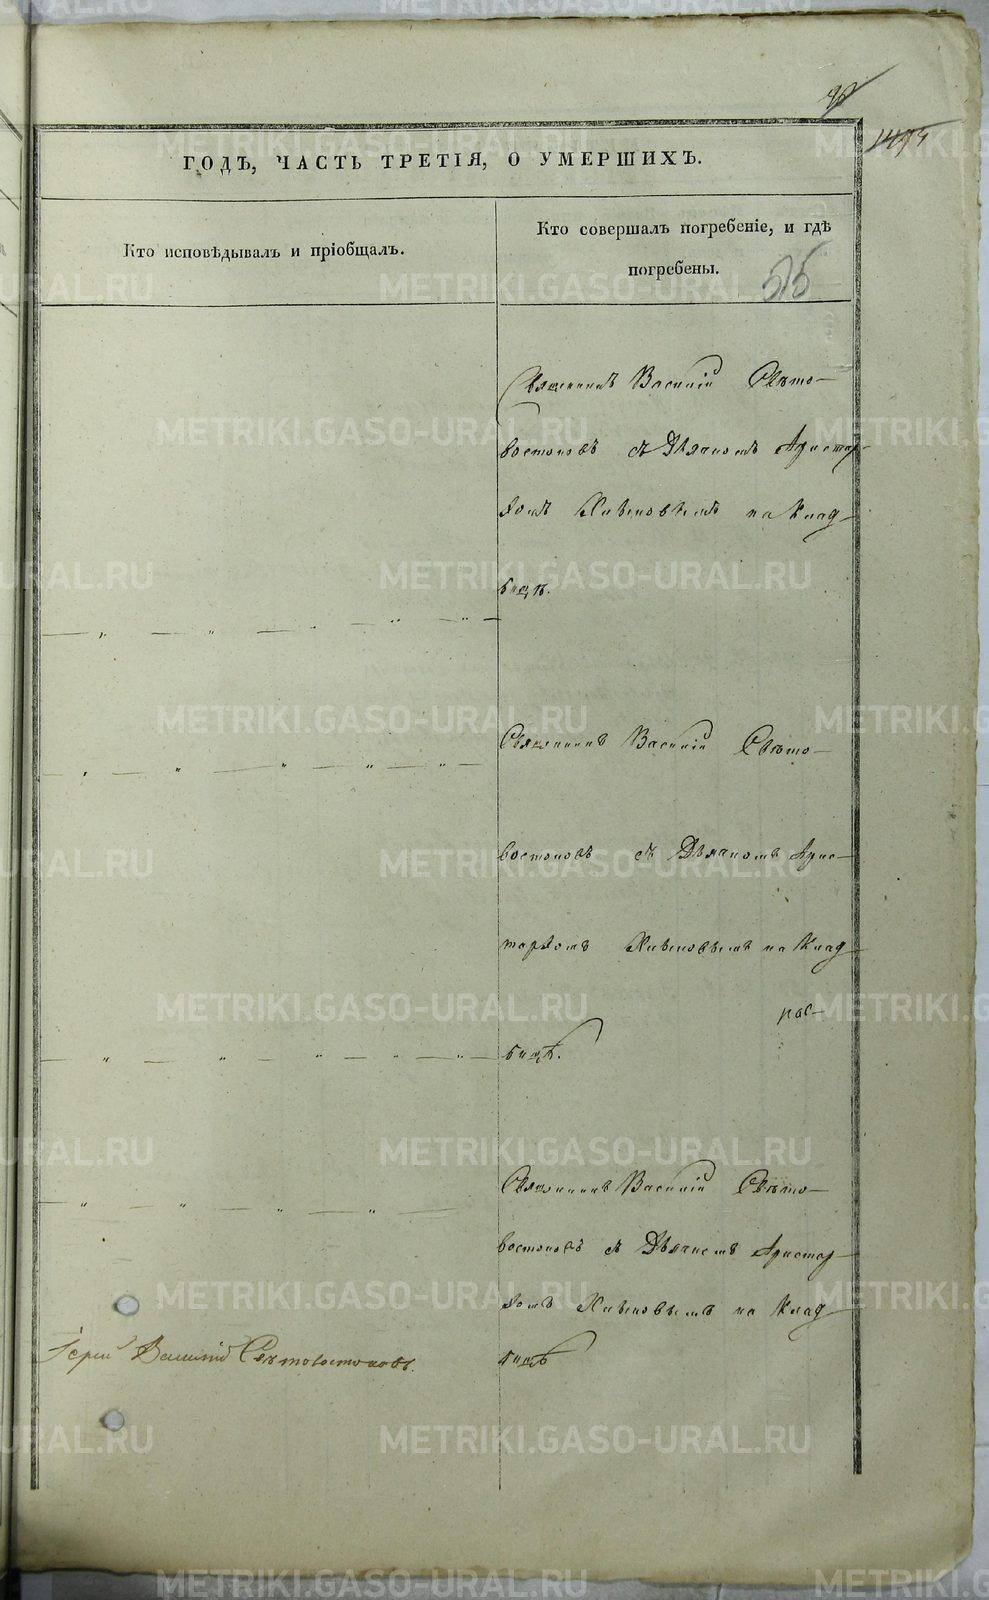 ГОДЪ, ЧАСТЬ ТРЕТІЯ, О УМЕРШИХЪ.
Кто исповѣдывалъ и пріобщалъ.
Кто совершалъ погребеніе, и гдѣ
погребены.
Священникъ Василій Свѣто-
востоковъ съ Дьячкомъ Аристар-
хомъ на Клад-
бищѣ.
Священникъ Василій Свѣто-
востоковъ съ Дьячкомъ Арис-
тархомъ на Клад-
бищѣ.
Священникъ Василій Свѣто-
востоковъ съ Дьячкомъ Аристар-
хомъ на Клад-
бищѣ
Іерей Василій Свѣтовостоковъ.
METRIKI.GASO-URAL.RU